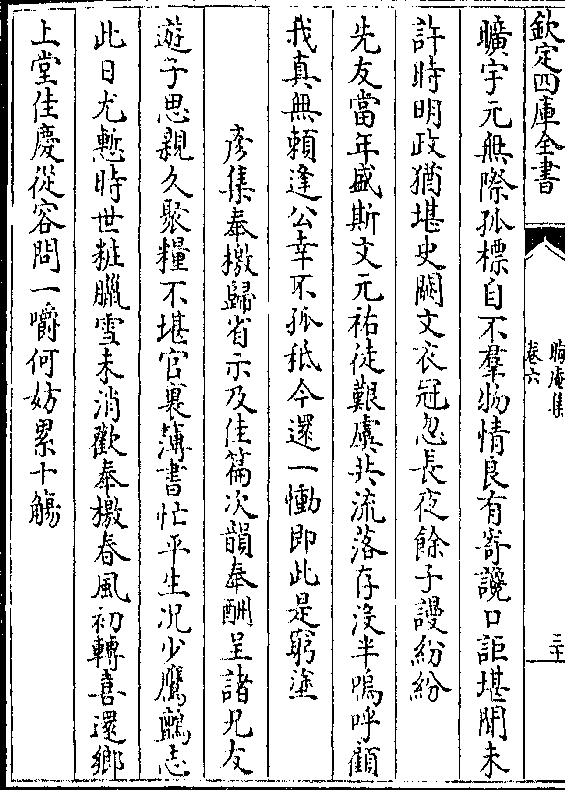 欽定四庫全書
晦庵集
卷六
三十
曠宇元無際孤標自不羣物情良有寄讒口詎堪聞未
許時明政猶堪史闕文衣冠忽長夜餘子謾紛紛
先友當年盛斯文元祐徒艱虞共流落存没半嗚呼顧
我真無賴逢公幸不孤秪今還一慟即此是窮塗
彦集奉檄歸省示及佳篇次韻奉酬呈諸兄友
遊子思親久聚糧不堪官裏簿書忙平生况少鷹鸇志
此日尤慙時世粧臘雪未消歡奉檄春風初轉喜還鄉
上堂佳慶從容問一嚼何妨累十觴